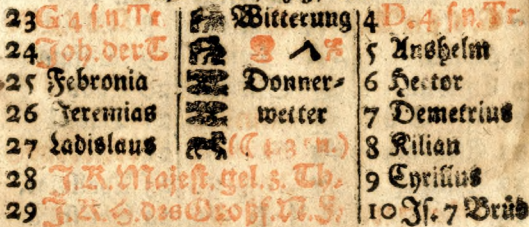 23 G 4 s. n. Tr Witterung 4 D. 4 s. n. Tr
24 Joh. der T 5 Anshelm
25 Febronia Donner⸗ 6 Hector
26 Jeremias wetter 7 Demetrius
27 Ladislaus 8 Kilian
28 J. K. Majest. gel. 3. Th. 9 Cyrillus
29 J. K. H. des Großf. N. J. 10 Js. 7 Brüd